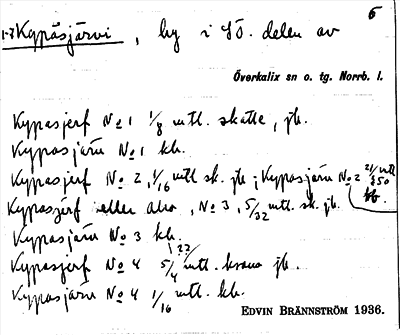 6
1-7 Kypäsjärvi, by i SÖ. delen av
Överkalix sn o. tg. Norrb. l.
Kypasjerf No 1 1/8 mtl. skatte, jb.
Kypasjärv No 1 kb.
Kypasjerf No 2, 1/16 mtl sk. jb; Kypasjärv No 2 21/850 mtl kb.
Kypasjerf eller Aho, No 3, 5/32 mtl. sk. jb.
Kypasjärv No 3 kb.
Kypasjerf No 4 mtl. krono jb.
Kypasjärv No 4 1/16 mtl. kb.
EDVIN BRÄNNSTRÖM 1936.